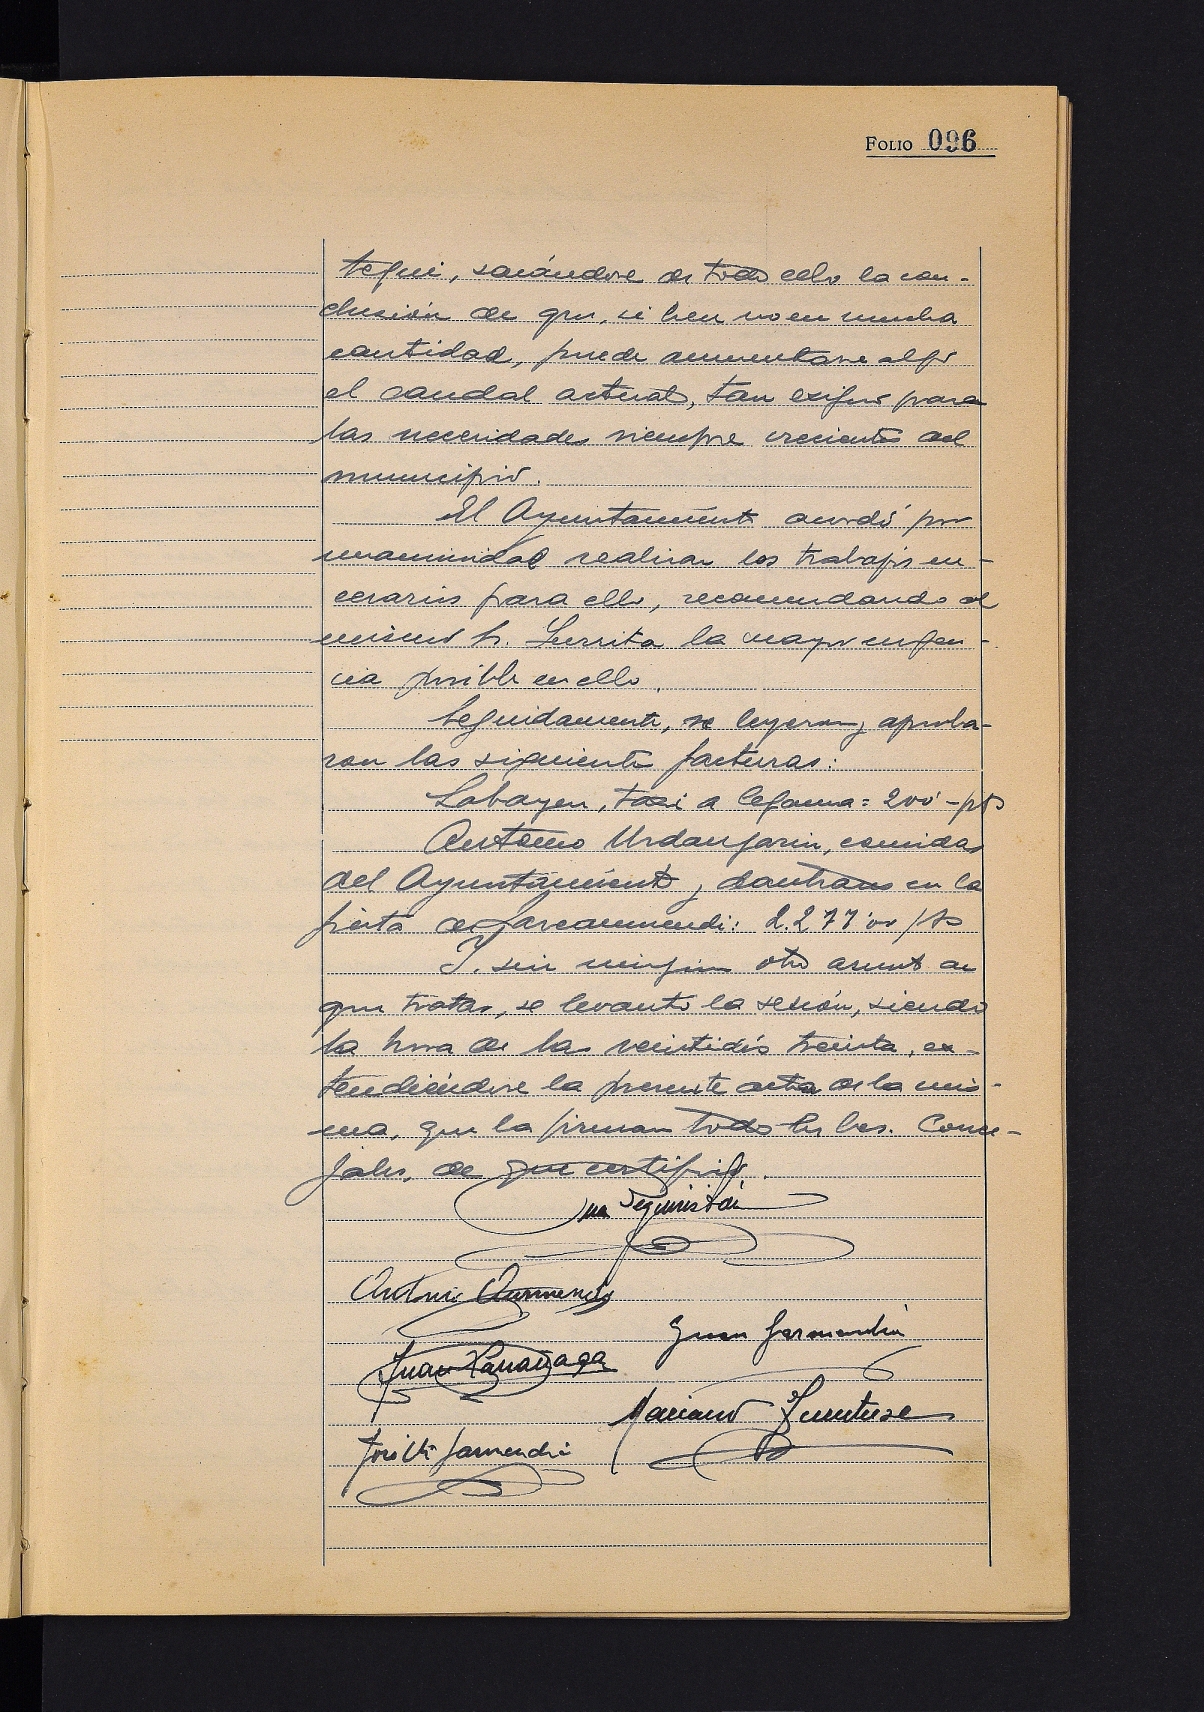 FOLIO 096
tegui, sacándose de todo ello la con-
clusión de que, si bien no en mucha
cantidad, puede aumentarse algo
el caudal actual, tan exiguo para
las necesidades siempre crecientes del
municipio.
El Ayuntamiento acordó por
unanimidad realizar los trabajos en-
cesarios para ello, recomendando al
mismo Sr. Zurrita la mayor urgen-
cia posible en ello.
Seguidamente, se leyeron y aproba-
ron las siguientes facturas:
Labayen, taxi a Cegama = 200'- pts
Antonio Urdangarin, comidas
del Ayuntamiento y dantzaris en la
fiesta de Jarcanmendi: 2.277'00 pts
Y sin ningún otro asunto de
que tratar, se levantó la sesión, siendo
la hora de las veintidós treinta, ex-
tendiéndose la presente acta de la mis-
ma, que la firman todos los Sres. Conce-
jales, de que certifico.
Antonio
Juan Garmendia
Juan Larrañaga
Mariano
José Mª Garmendia